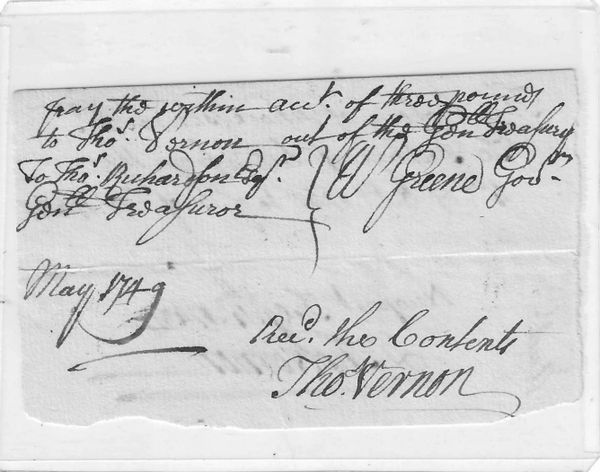 pay the within acct. of three pounds
to Thos. Vernon out of the Genll Treasury
To Thos. Richardson Esqr.
Genll Treasuror
W Greene Govr.
May 1749
Recd. the Contents
Tho. Vernon